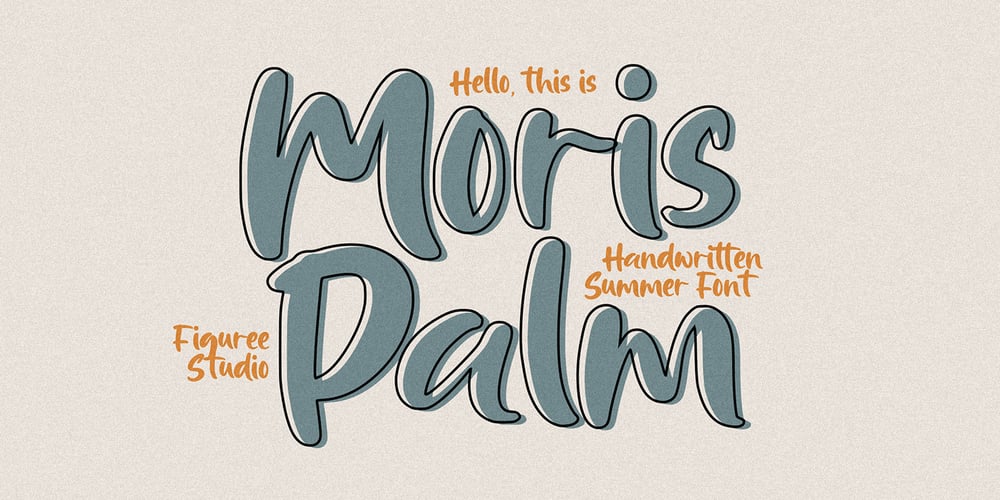 Hello, this is
Moris
Handwritten
Summer Font
Palm
Figuree
Studio